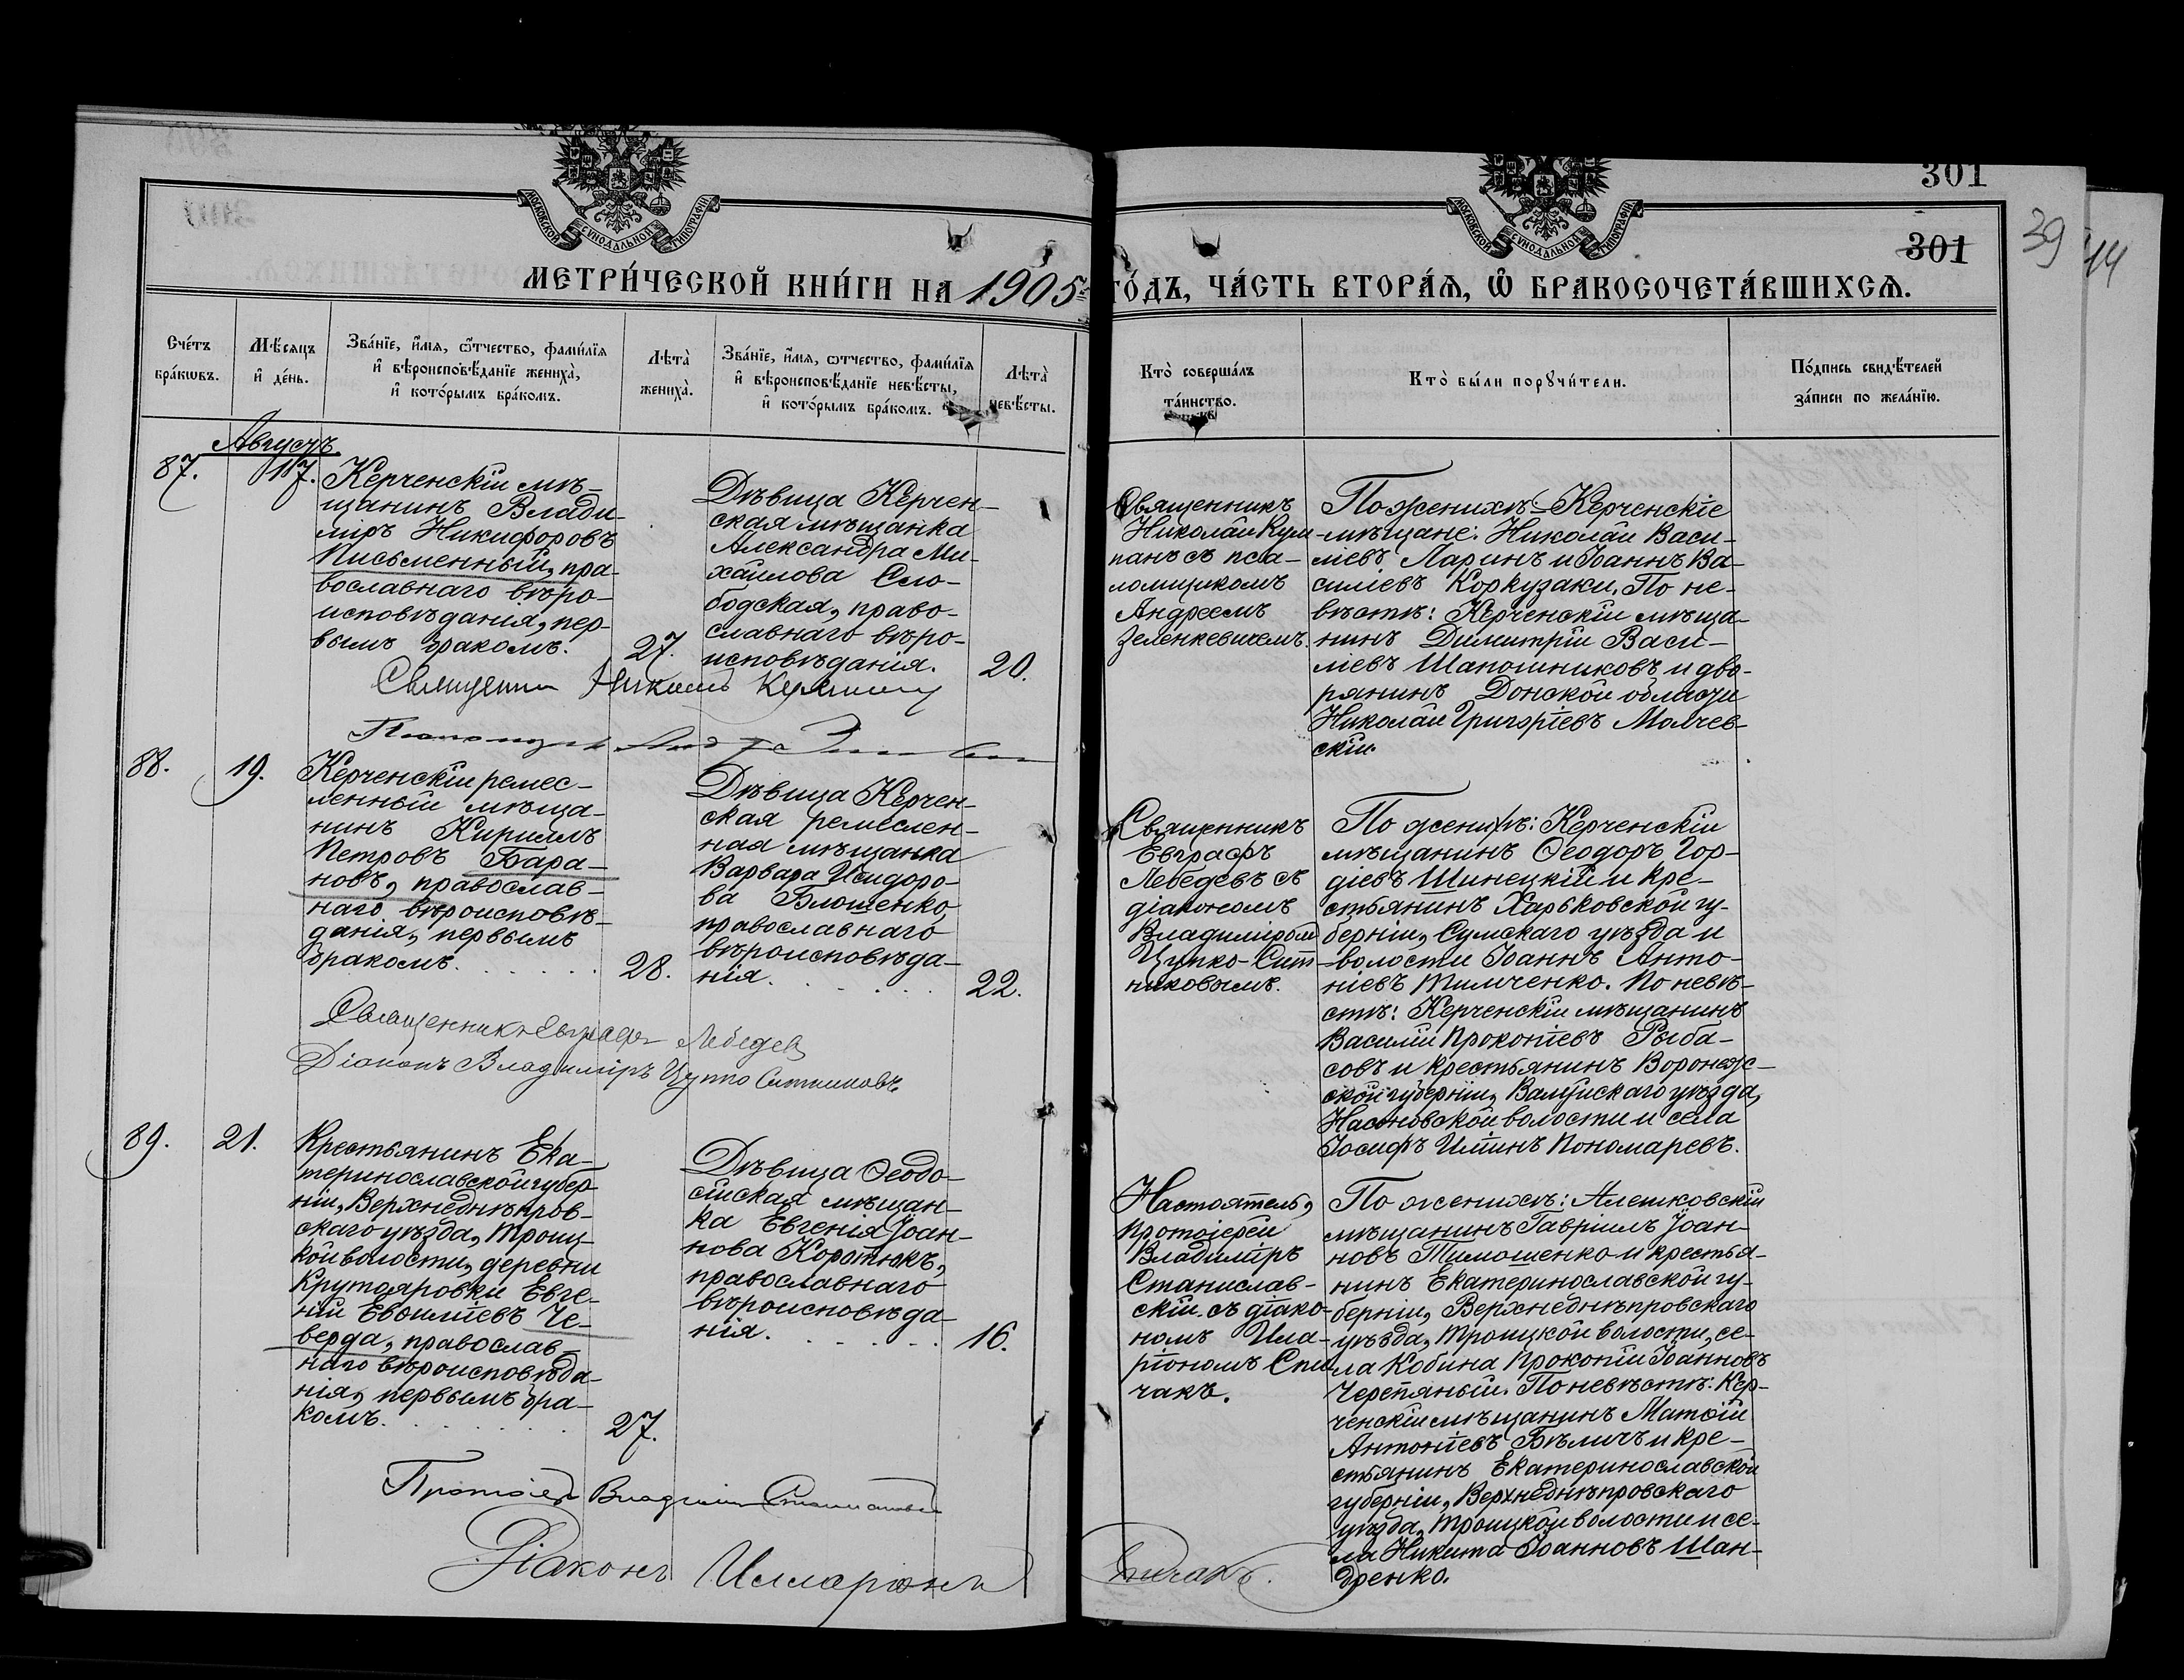 301
301
39
44
МОСКОВСКОЙ СѴНОДАЛЬНОЙ ТИПОГРАФІИ
МОСКОВСКОЙ СѴНОДАЛЬНОЙ ТИПОГРАФІИ
МЕТРИ́ЧЕСКОЙ КНИ́ГИ НА 1905 ГО́ДЪ, ЧА́СТЬ ВТОРА́Я, Ѿ БРАКОСОЧЕТА́ВШИХСѦ.
Сче́тъ
бра́кѡвъ.
Мѣ́сяцъ
и҆ де́нь.
Зва́нїе, и҆́мя, ѻ҆́тчество, фами́лїя
и҆ вѣроисповѣ́данїе жениха̀,
и҆ кото́рымъ бра́комъ.
Лѣ́та̀
жениха̀.
Зва́нїе, и҆́мя, ѻ҆тчество, фами́лїя
и҆ вѣроисповѣ́данїе невѣ́сты,
и҆ кото́рымъ бра́комъ.
Лѣ́та̀
невѣ́сты.
Кто̀ соверша́лъ
та́инство.
Кто̀ бы́ли порꙋчи́тели.
По́дпись свидѣ́телей
за́писи по жела́нїю.
Августъ
87.
17.
Керченскій мѣ-
щанинъ Влади-
міръ Никифоровъ
Письменный, пра-
вославнаго вѣро-
исповѣданія, пер-
вымъ бракомъ.
27.
Дѣвица Керчен-
ская мѣщанка
Александра Ми-
хайлова Сло-
бодская, право-
славнаго вѣро-
исповѣданія.
20.
Священникъ
Николай Кум-
панъ съ пса-
ломщикомъ
Андреемъ
Зеленкевичемъ.
По женихѣ: Керченскіе
мѣщане: Николай Васи-
ліевъ Ларинъ и Іоаннъ Ва-
силіевъ Коркузаки. По не-
вѣстѣ: Керченскій мѣща-
нинъ Димитрій Васи-
ліевъ Шапошниковъ и дво-
рянинъ Донской области
Николай Григоріевъ Молчев-
скій.
Священникъ Николай
88.
19.
Керченскій ремес-
ленный мѣща-
нинъ Кириллъ
Петровъ Бара-
новъ, православ-
наго вѣроисповѣ-
данія, первымъ
бракомъ.
28.
Дѣвица Керчен-
ская ремеслен-
ная мѣщанка
Варвара Исидоро-
ва Блошенко,
православнаго
вѣроисповѣда-
нія.
22.
Священникъ
Евграфъ
Лебедевъ съ
діакономъ
Владиміромъ
Цупко-Сит-
никовымъ.
По женихѣ: Керченскій
мѣщанинъ Ѳеодоръ Гор-
діевъ Шинецкій и кре-
стьянинъ Харьковской гу-
берніи, Сумскаго уѣзда и
волости Іоаннъ Анто-
ніевъ Тимченко. По невѣ-
стѣ: Керченскій мѣщанинъ
Василій Прокопіевъ Рыба-
совъ и крестьянинъ Воронеж-
ской губерніи, Валуйскаго уѣзда,
Насоновской волости и села
Іосифъ Илiинъ Пономаревъ.
Священникъ Евграфъ Лебедевъ
Діаконъ Владиміръ Цупко Ситниковъ
89.
21.
Крестьянинъ Ека-
теринославской губер-
ніи, Верхнеднѣпров-
скаго уѣзда, Троиц-
кой волости, деревни
Крутояровки Евге-
ній Евфиміевъ Че-
верда, православ-
наго вѣроисповѣда-
нія, первымъ бра-
комъ.
27.
Дѣвица Ѳеодо-
сійская мѣщан-
ка Евгенія Іоан-
нова Коротюкъ,
православнаго
вѣроисповѣда-
нія.
16.
Настоятель,
Протоіерей
Владиміръ
Станислав-
скій съ діако-
номъ Ила-
ріономъ Спи-
чакъ.
По женихѣ: Алешковскій
мѣщанинъ Гавріилъ Іоан-
новъ Тимошенко и крестья-
нинъ Екатеринославской гу-
берніи, Верхнеднѣпровскаго
уѣзда, Троицкой волости, се-
ла Кобина Прокопій Іоанновъ
Черетяный. По невѣстѣ: Кер-
ченскій мѣщанинъ Матѳій
Антоніевъ Бѣличъ и кре-
стьянинъ Екатеринославской
губерніи, Верхнеднѣпровскаго
уѣзда, Троицкой волости и се-
ла Никита Іоанновъ Шан-
дренко.
Протоіерей Владиміръ Станиславскій
Діаконъ Илларіонъ Спичакъ.